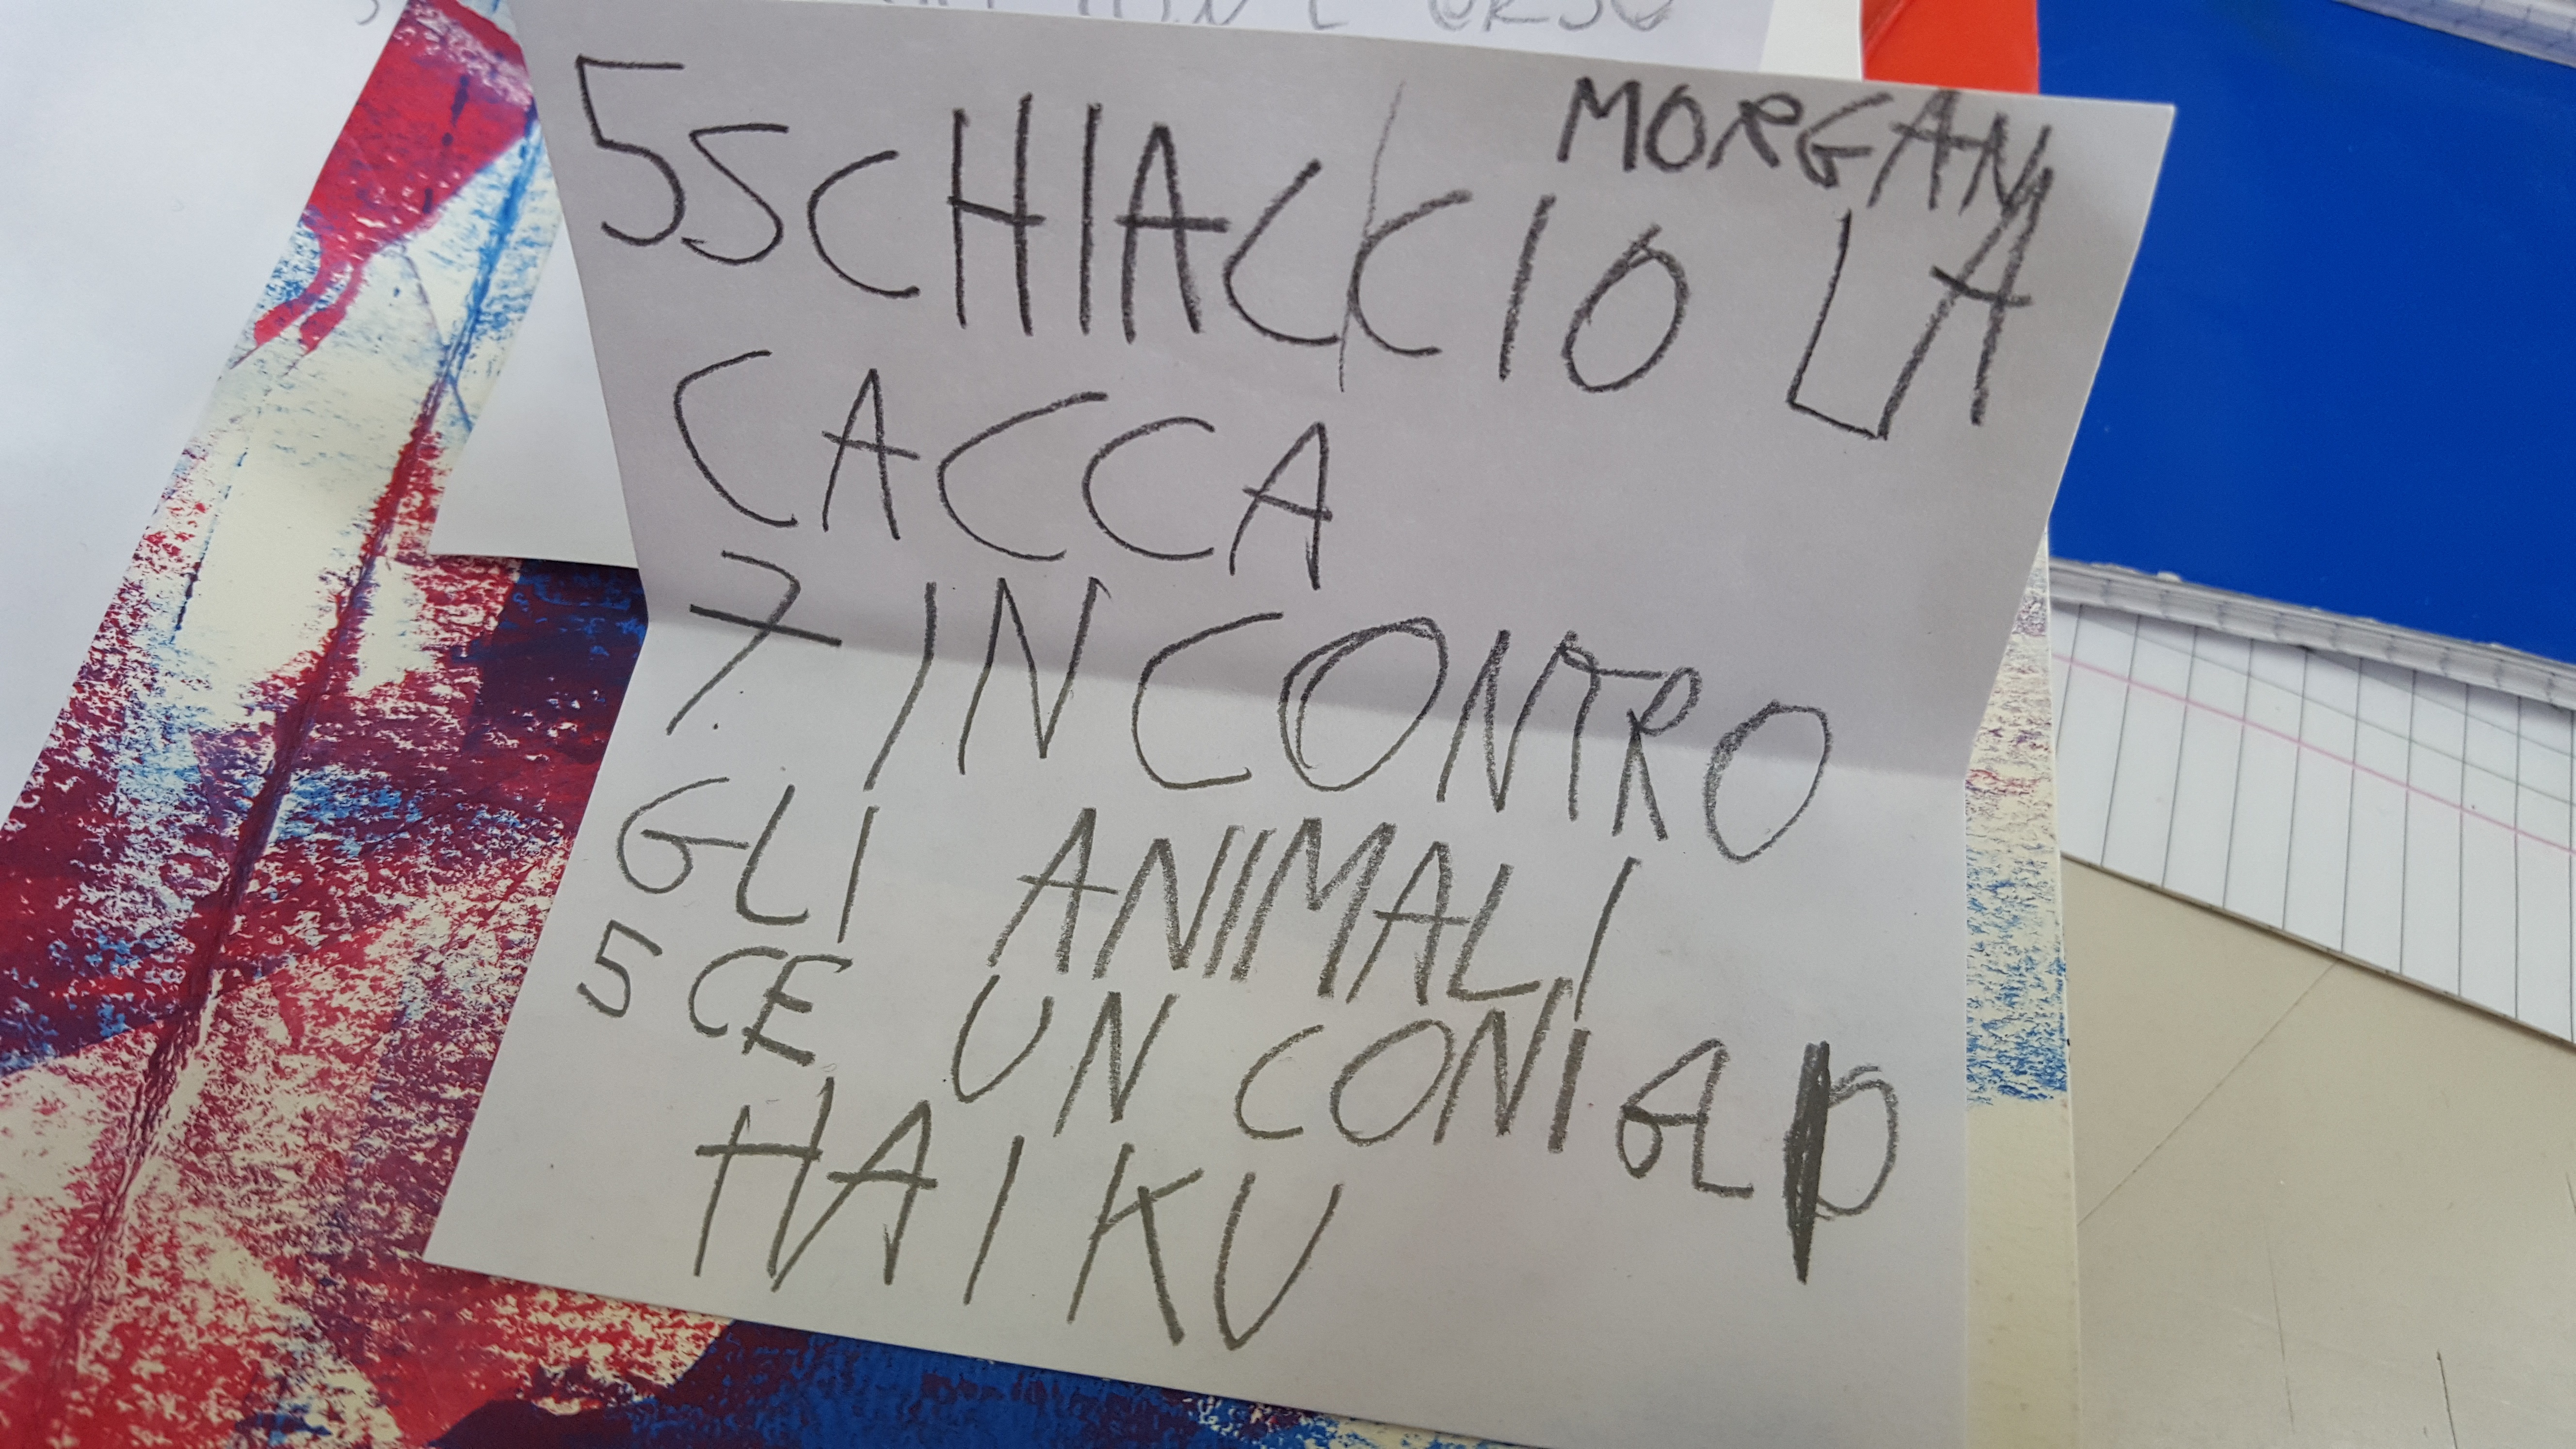 MORGAN
5 SCHIAC/CIO LA
CACCA
7 INCONTRO
GLI ANIMALI
5 CE UN CONIGLIO
HAIKU